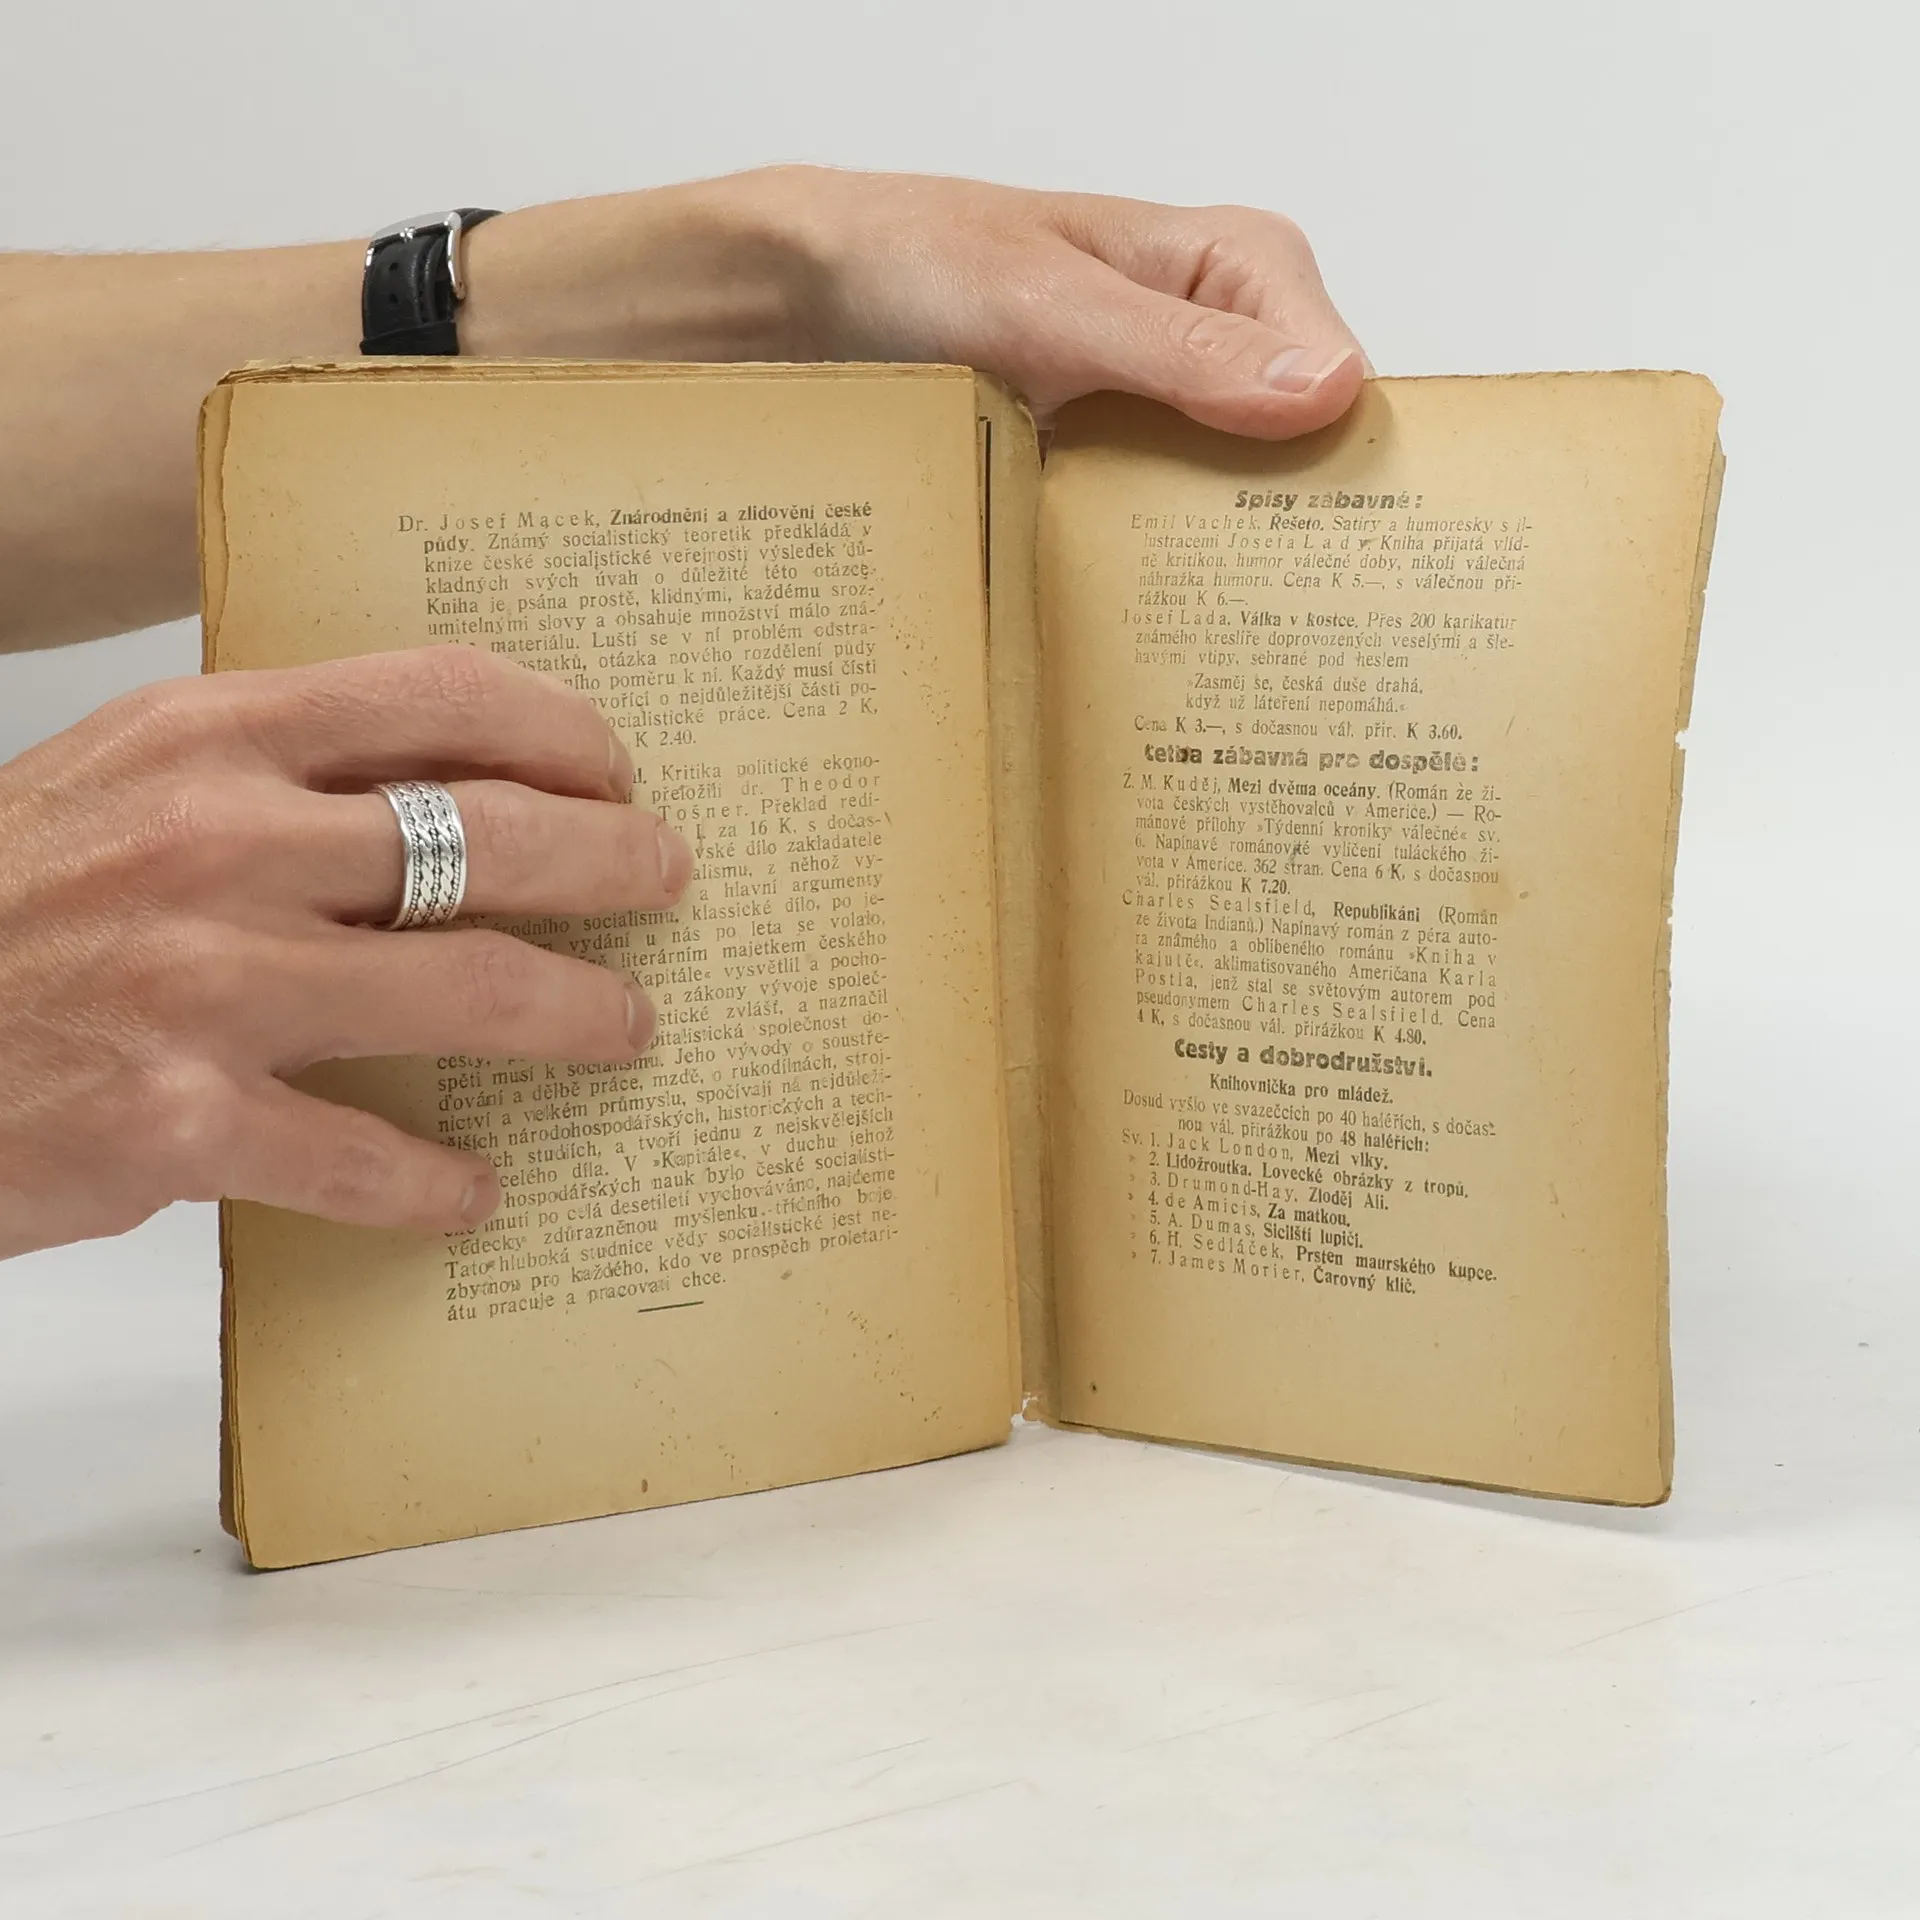 Dr. Josef Macek, Znárodnění a zlidovění české
půdy. Známý socialistický teoretik předkládá v
knize české socialistické veřejnosti výsledek dů-
kladných svých úvah o důležité této otázce.
Kniha je psána prostě, klidnými, každému sroz-
umitelnými slovy a obsahuje množství málo zná-
materiálu. Luští se v ní problém odstra-
ostatků, otázka nového rozdělení půdy
ního poměru k ní. Každý musí čísti
ovořící o nejdůležitější části po-
ocialistické práce. Cena 2 K,
K 2.40.
Kritika politické ekono-
přeložili dr. Theodor
Tošner. Překlad redi-
I. za 16 K, s dočas-
vské dílo zakladatele
alismu, z něhož vy-
a hlavní argumenty
árodního socialismu, klassické dílo, po je-
vydání u nás po leta se volalo,
literárním majetkem českého
Kapitále« vysvětlil a pocho-
a zákony vývoje společ-
stické zvlášť, a naznačil
pitalistická společnost do-
cesty,
spěti musí k socialismu. Jeho vývody o soustře-
ďování a dělbě práce, mzdě, o rukodílnách, stroj-
nictví a velkém průmyslu, spočívají na nejdůleži-
tějších národohospodářských, historických a tech-
ch studiích, a tvoří jednu z nejskvělejších
celého díla. V »Kapitále«, v duchu jehož
hospodářských nauk bylo české socialisti-
hnutí po celá desetiletí vychováváno, najdeme
vědecky zdůrazněnou myšlenku třídního boje.
Tato hluboká studnice vědy socialistické jest ne-
zbytnou pro každého, kdo ve prospěch proletari-
átu pracuje a pracovati chce.
Spisy zábavné:
Emil Vachek, Řešeto. Satiry a humoresky s il-
lustracemi Josefa Lady. Kniha přijatá vlíd-
ně kritikou, humor válečné doby, nikoli válečná
náhražka humoru. Cena K 5.—, s válečnou při-
rážkou K 6.—.
Josef Lada, Válka v kostce. Přes 200 karikatur
známého kreslíře doprovozených veselými a šle-
havými vtipy, sebrané pod heslem
»Zasměj se, česká duše drahá,
když už láteření nepomáhá.«
Cena K 3.—, s dočasnou vál. přir. K 3.60.
Četba zábavná pro dospělé:
Z. M. Kuděj, Mezi dvěma oceány. (Román ze ži-
vota českých vystěhovalců v Americe.) — Ro-
mánové přílohy »Týdenní kroniky válečné« sv.
6. Napínavé románovité vylíčení tuláckého ži-
vota v Americe. 362 stran. Cena 6 K, s dočasnou
vál. přirážkou K 7.20.
Charles Sealsfield, Republikáni (Román
ze života Indianů.) Napínavý román z péra auto-
ra známého a oblíbeného románu »Kniha v
kajutě«, aklimatisovaného Američana Karla
Postla, jenž stal se světovým autorem pod
pseudonymem Charles Sealsfield. Cena
4 K, s dočasnou vál. přirážkou K 4.80.
Cesty a dobrodružství.
Knihovnička pro mládež.
Dosud vyšlo ve svazečcích po 40 haléřích, s dočas-
nou vál. přirážkou po 48 haléřích:
Sv. 1. Jack London, Mezi vlky.
» 2. Lidožroutka. Lovecké obrázky z tropů.
» 3. Drumond-Hay, Zloděj Ali.
» 4. de Amicis, Za matkou.
» 5. A. Dumas, Sicilští lupiči.
» 6. H. Sedláček, Prsten maurského kupce.
» 7. James Morier, Čarovný klíč.